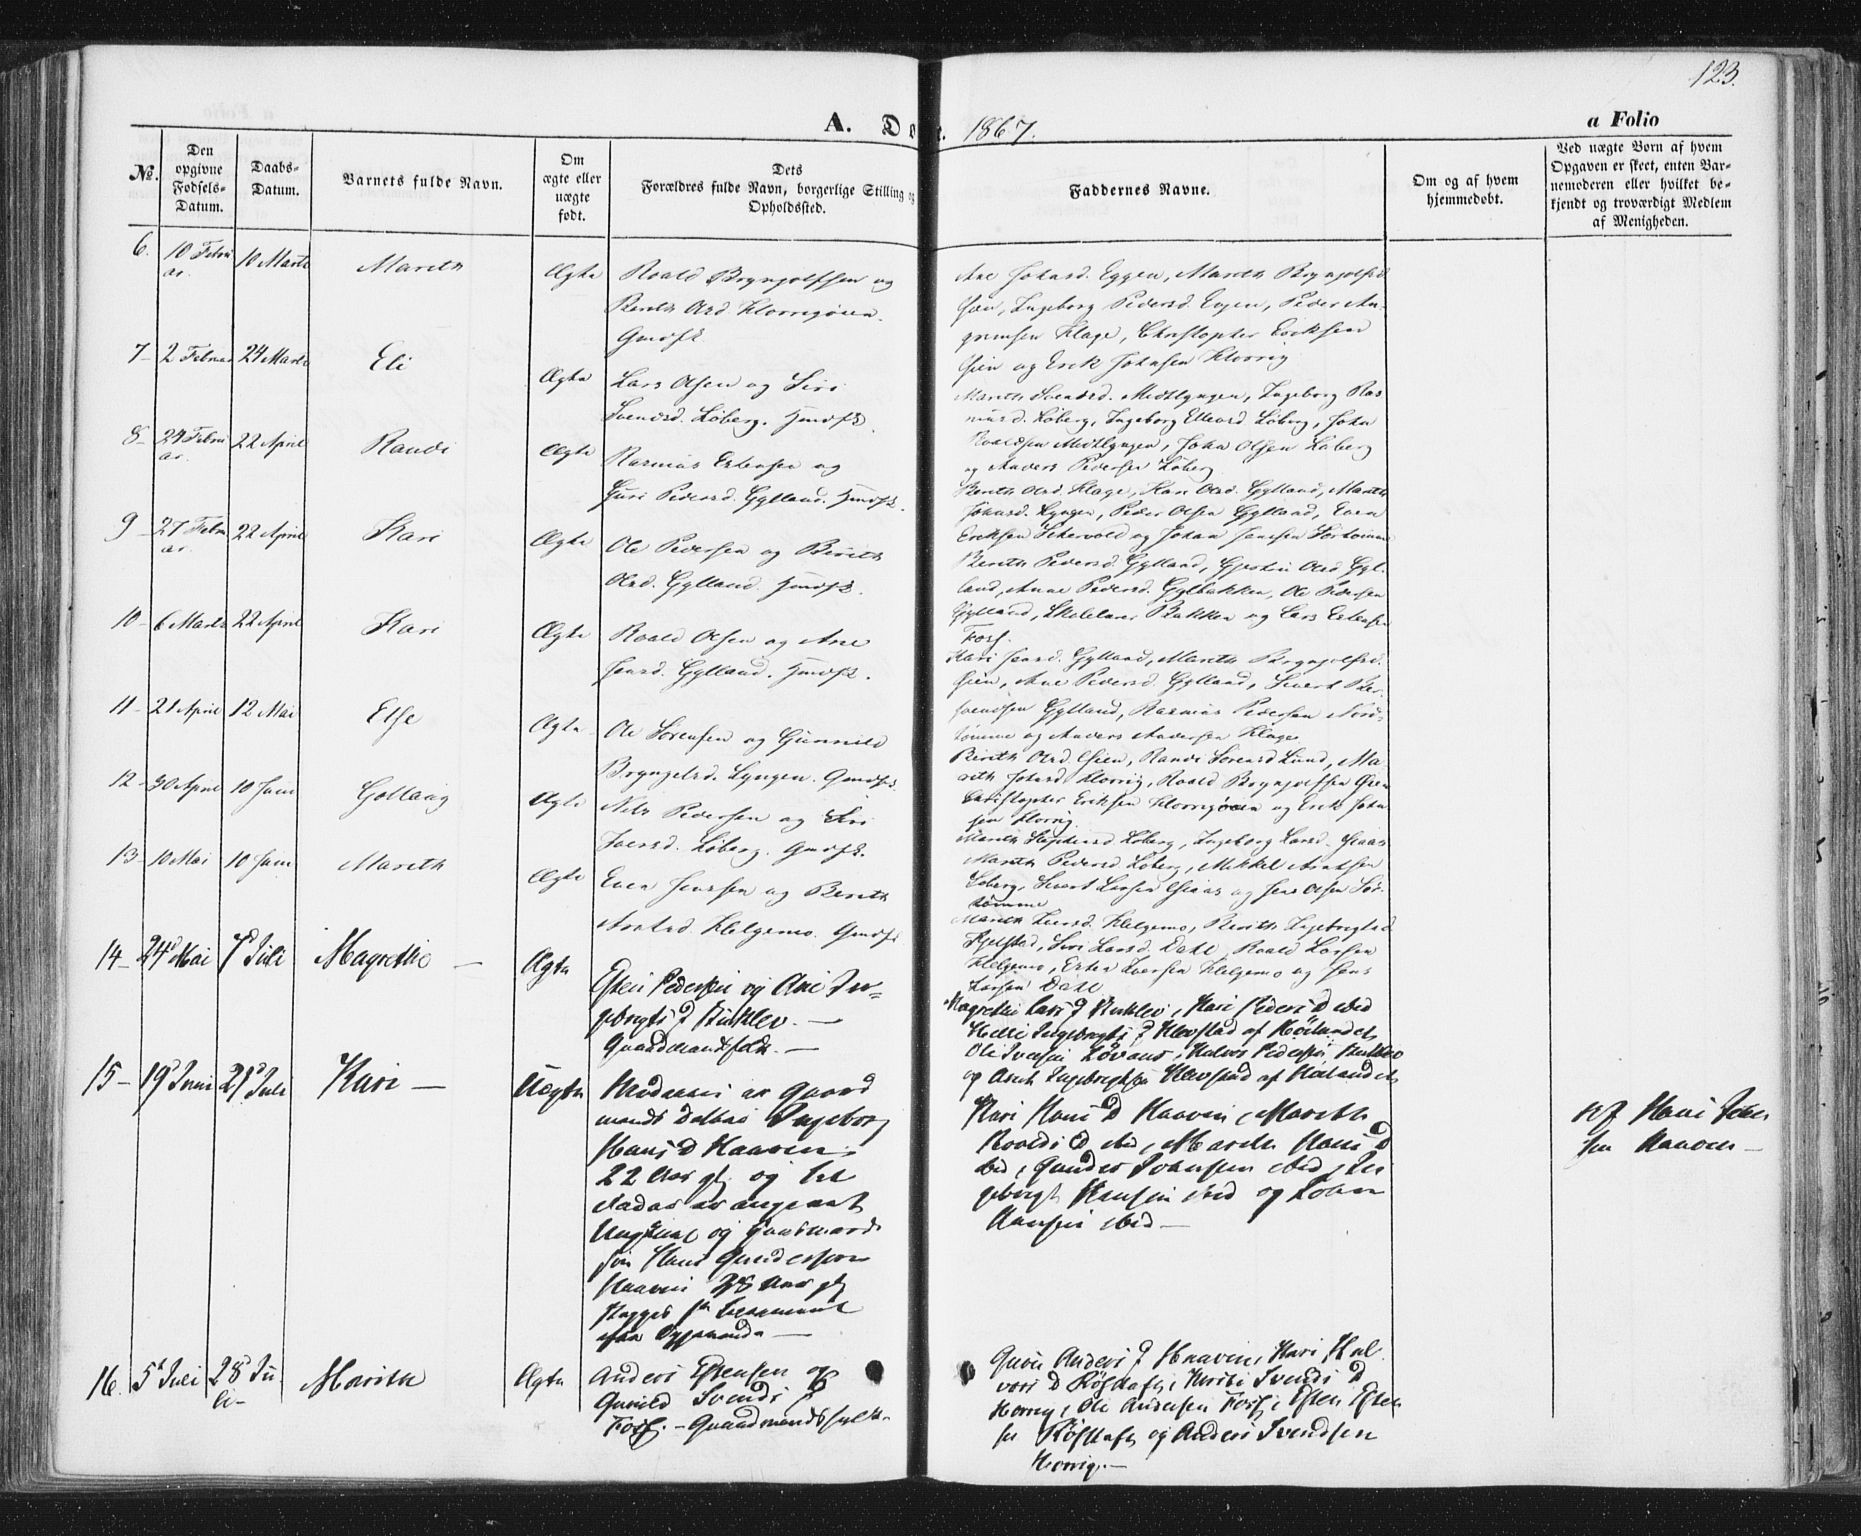 123.
A. Do 1867. a Folio
No. Den opgivne Fødsels-Datum. Daabs-Datum. Barnets fulde Navn. Om ægte eller uægte født. Dets Forældres fulde Navn, borgerlige Stilling og Opholdssted. Faddernes Navne. Om og af hvem hjemmedøbt. Ved uægte Børn af hvem Opgaven er skeet, enten Barnemoderen eller hvilket bekjendt og troværdigt Medlem af Menigheden.
6. 10 Februar. 10 Marts Mareth Ægte Roald Brynjolfssen og
Bereth Olsd. Horrigøien.
Gmdfk
Ane Johnsd. Eggen, Mareth Brynjolfsd.
Øien, Ingeborg Pedersd. Engen, Peder Arngrimsen Klage, Christopher Eriksen
Øien og Erik Johnsen Horrig
7 2 Februar 24 Marts Eli Ægte Lars Olsen og Siri
Svendsd. Løberg. Gmdfk.
Mareth Svendsd. Midtlyngen, Ingeborg Rasmusd. Løberg, Ingeborg Ellevsd Løberg, John
Roaldsen Midtlyngen, John Olsen Løberg
og Anders Pedersen Løberg
8 24 Februar. 22 April Randi Ægte Rasmus Estensen og
Guri Pedersd. Gylland. Gmdfk.
Bereth Olsd. Klage, Kari Olsd. Gylland, Mareth
Johnsd. Lyngen, Peder Olsen Gylland, Even
Eriksen og Johan Jensen Sørtømme
9 27 Februar. 22 April Kari Ægte Ole Pedersen og Bereth
Olsd. Gylland. Gmdfk.
Bereth Pedersd. Gylland, Gjertru Olsd Gylland, Anne Pedersd. Gylbakken, Ole Pedersen
Gylland, Skolelærer Bakken og Lars Estensen
Foss.
10 6 Marts 22 April Kari Ægte Roald Olsen og Ane
Jensd. Gylland. Gmdfk.
Kari Jensd. Gylland, Mareth Brynjolfsd.
Øien, Ane Pedersd. Gylland, Sivert Gylland, Rasmus Pedersen Nordtømme og Anders Andersen Klage
11 21 April 12 Mai Else Ægte Ole Sørensen og Gunnild
Bryngelsd. Lyngen. Gmdfk.
Bereth Olsd. Øien, Randi Sørensd Lund, Mareth Johnsd. Horrig, Roald Brynjolfssen Øien
Christopher Eriksen Horrigøien og Erik Johnsen Horrig
12 30 April 10 Juni Gollaug Ægte Nils Pedersen og Siri
Iversd. Løberg. Gmdfk.
Mareth Løberg, Ingeborg Larsd. Graas
Mareth Pedersd Løberg, Mikkel Arntsen
Løberg, Sivert Larsen Graas og Jens Olsen Sørtømme
13 10 Mai 10 Juni Mareth Ægte Even Jensen og Bereth
Arntsd. Helgemo. Gmdfk
Mareth Helgemo, Bereth Ingebrigtsd
Kjelstad, Siri Larsd. Dahl, Roald Larsen
Helgemo, Ester Iversen Helgemo og Jens
Larsen Dahl
14 24d Mai 7d Juli Magrethe – Ægte Esten Pedersen og Ane Ingebrigtsd –
Gaardmandsfolk. –
Magrethe Larsd, Kari Pedersd ibid
Ingebrigtsd Kløvstad af Hølandet,
Ole Svensen, Halvor Pedersen
og Arnt Ingebrigtsen Kløvstad af Hølandet
15 – 19d Juni 21d Juli Kari – Uægte Moderen er Gaardmands Datter Ingeborg
Hansd Haaven
22 Aar gl og
Fader er angivet
Ungkarl og Gaardmands
søn Hans Gundersen
Haaven 28 Aar gl
Kari Hansd Haaven, Mareth
Roaldsd ibid, Mareth Hansd
ibid, Gunder Johnsen ibid, Ingebrigt Hansen ibid og John
Hansen ibid –
af Hans Johnsen Haaven –
16. 5d Juli 28d Juli – Maritha Ægte Anders Estensen og
Gunild Svendsd
Foss. – Gaardmandsfolk.
Guru Andersd Haaven, Kari Halvorsd Røsshaft, Kirsti Svendsd
Horrig, Ole Andersen Foss, Esten Estensen Røsshaft og Anders Svendsen
Horrig. –